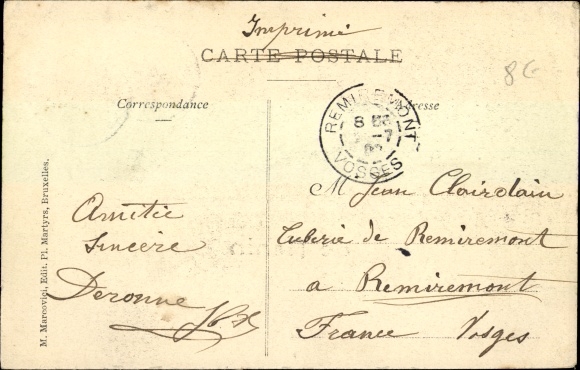 Imprimé
CARTE POSTALE
8G
Correspondance
Adresse
REMIREMONT
8
-7
VOSGES
M. Marcovici, Edit. Pl. Martyrs, Bruxelles.
Amitié
Sincère
Deronne
M Jean Clairdain
Tuberie de Remiremont
a Remiremont
France Vosges